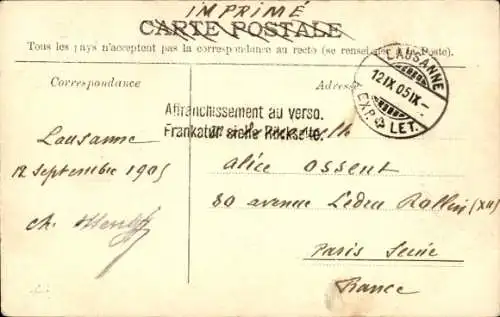 IMPRIMÉ
CARTE POSTALE
Tous les pays n'acceptent pas la correspondance au recto (se renseigner à la Poste).
Correspondance
Adresse
LAUSANNE
12 IX 05 IX -
EXP. LET.
Affranchissement au verso.
Frankatur siehe Rückseite.
Lausanne
12 Septembre 1905
Ch.
Alice Ossent
80 avenue Ledru Rollin (XII)
Paris Seine
France